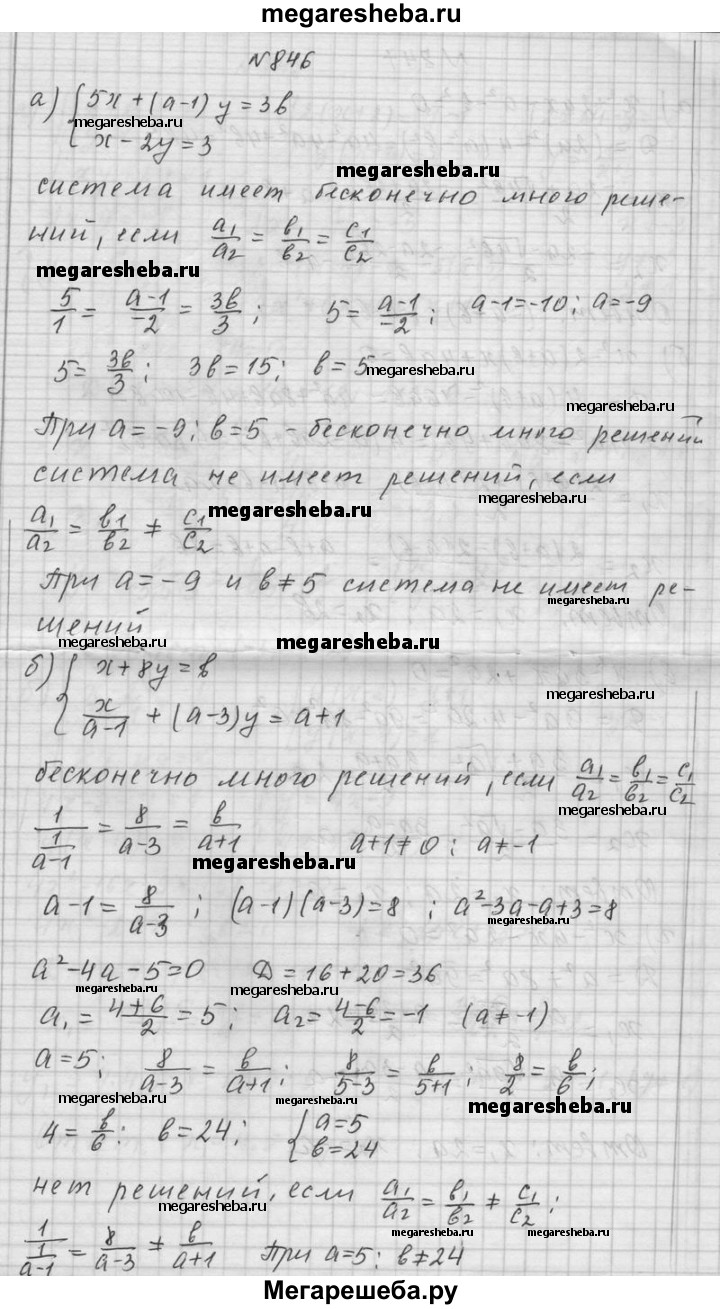 megaresheba.ru
N846
а) { 5x + (a-1) y = 3в
megaresheba.ru
x - 2y = 3
megaresheba.ru
система имеет бесконечно много реше-
ний, если a₁/a₂ = в₁/в₂ = c₁/c₂
megaresheba.ru
5/1 = (a-1)/-2 = 3в/3 ; 5 = (a-1)/-2 ; a-1 = -10 ; a = -9
5 = 3в/3 ; 3в = 15 ; в = 5
megaresheba.ru
megaresheba.ru
При a = -9 ; в = 5 - бесконечно много решений
система не имеет решений, если
megaresheba.ru
a₁/a₂ = в₁/в₂ ≠ c₁/c₂
megaresheba.ru
При a = -9 и в ≠ 5 система не имеет ре-
megaresheba.ru
шений
megaresheba.ru
megaresheba.ru
б) { x + 8y = в
megaresheba.ru
x/(a-1) + (a-3)y = a+1
бесконечно много решений, если a₁/a₂ = в₁/в₂ = c₁/c₂
megaresheba.ru
1/(1/(a-1)) = 8/(a-3) = в/(a+1) a+1 ≠ 0 ; a ≠ -1
megaresheba.ru
a-1 = 8/(a-3) ; (a-1)(a-3) = 8 ; a²-3a-a+3 = 8
megaresheba.ru
a²-4a-5=0 Д = 16+20 = 36
megaresheba.ru
megaresheba.ru
a₁ = (4+6)/2 = 5 ; a₂ = (4-6)/2 = -1 (a ≠ -1)
a = 5 ; 8/(a-3) = в/(a+1) ; 8/(5-3) = в/(5+1) ; 8/2 = в/6 ;
megaresheba.ru
megaresheba.ru
4 = в/6 ; в = 24 ; { a = 5
в = 24
megaresheba.ru
megaresheba.ru
нет решений, если a₁/a₂ = в₁/в₂ ≠ c₁/c₂ ;
megaresheba.ru
megaresheba.ru
1/(1/(a-1)) = 8/(a-3) ≠ в/(a+1) При a = 5 ; в ≠ 24
Мегарешеба.ру